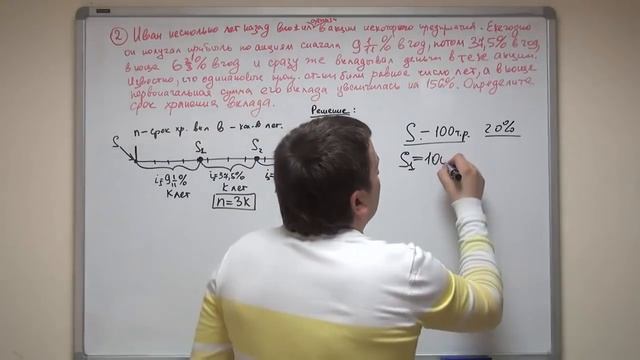 ② Иван несколько лет назад вложил деньги в акции некоторого предприятия. Ежегодно
он получал прибыль по акциям сначала 9 1/11 % в год, потом 37,5% в год,
в конце 6 2/3 % в год и сразу же вкладывал деньги в те же акции.
Известно, что одинаковые были равное число лет, а в конце
первоначальная сумма его вклада увеличилась на 156%. Определите
срок хранения вклада.
Решение:
n - срок хр. вкл в - лет.
S S₁ S₂
i₁=9 1/11 % i₂=37,5% i₃=
K лет K лет
n=3k
S - 100 т.р. 20%
S₁=100